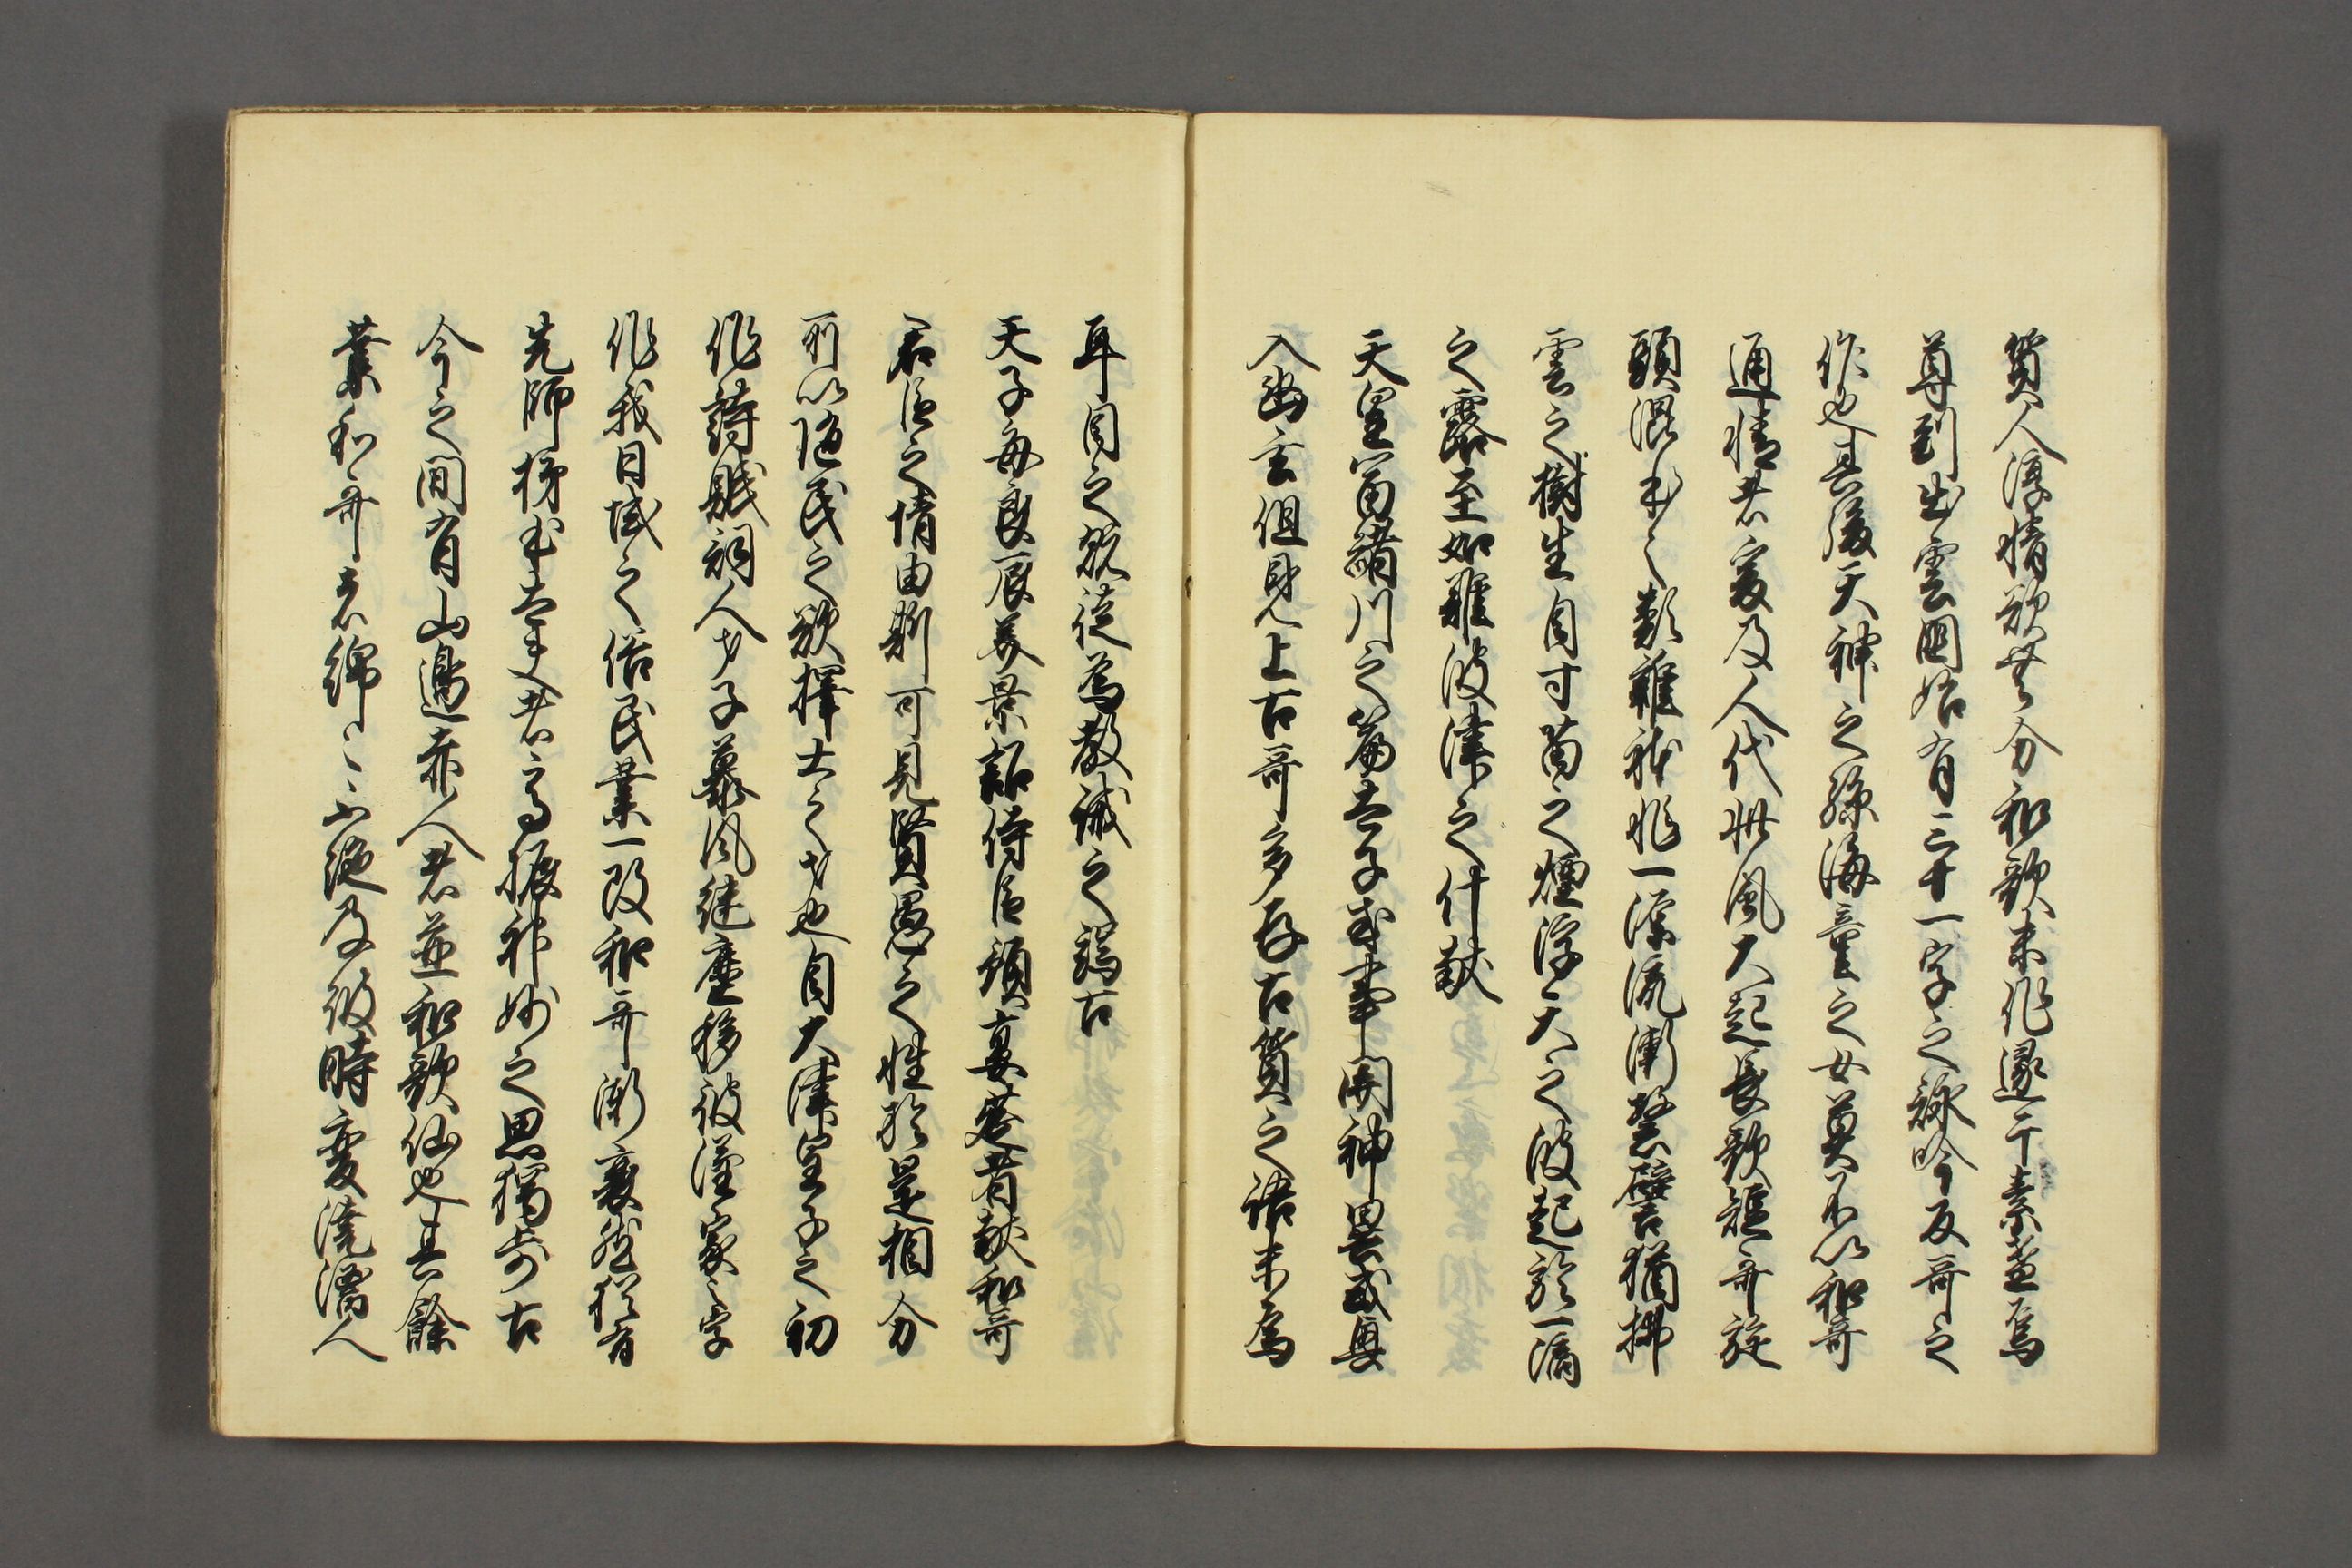 質人淳情欲無分和歌未作逮于素盞烏
尊到出雲国始有三十一字之詠今反哥之
作也其後天神之孫海童之女莫不以和哥
通情者爰及人代此風大起長歌短哥旋
頭混本之類雑躰非一源流漸繁譬猶拂
雲之樹生自寸苗之煙浮天之波起於一滴
之露至如難波津之什献
天皇富緒川之篇太子或事関神異或興
入幽玄但見上古哥多存古質之語未為
耳目之翫徒為教誡之端古
天子毎良辰美景詔侍臣預宴莚者献和哥
君臣之情由斯可見賢愚之性於是相分
所以随民之欲擇士之才也自大津皇子之初
作詩賦詞人才子慕風継塵移彼漢家之字
化我日域之俗民業一改和哥漸衰然猶有
先師柿本大夫者高振神妙之思獨歩古
今之間有山邊赤人者並和歌仙也其餘
業和哥者綿々不絶及彼時変澆漓人